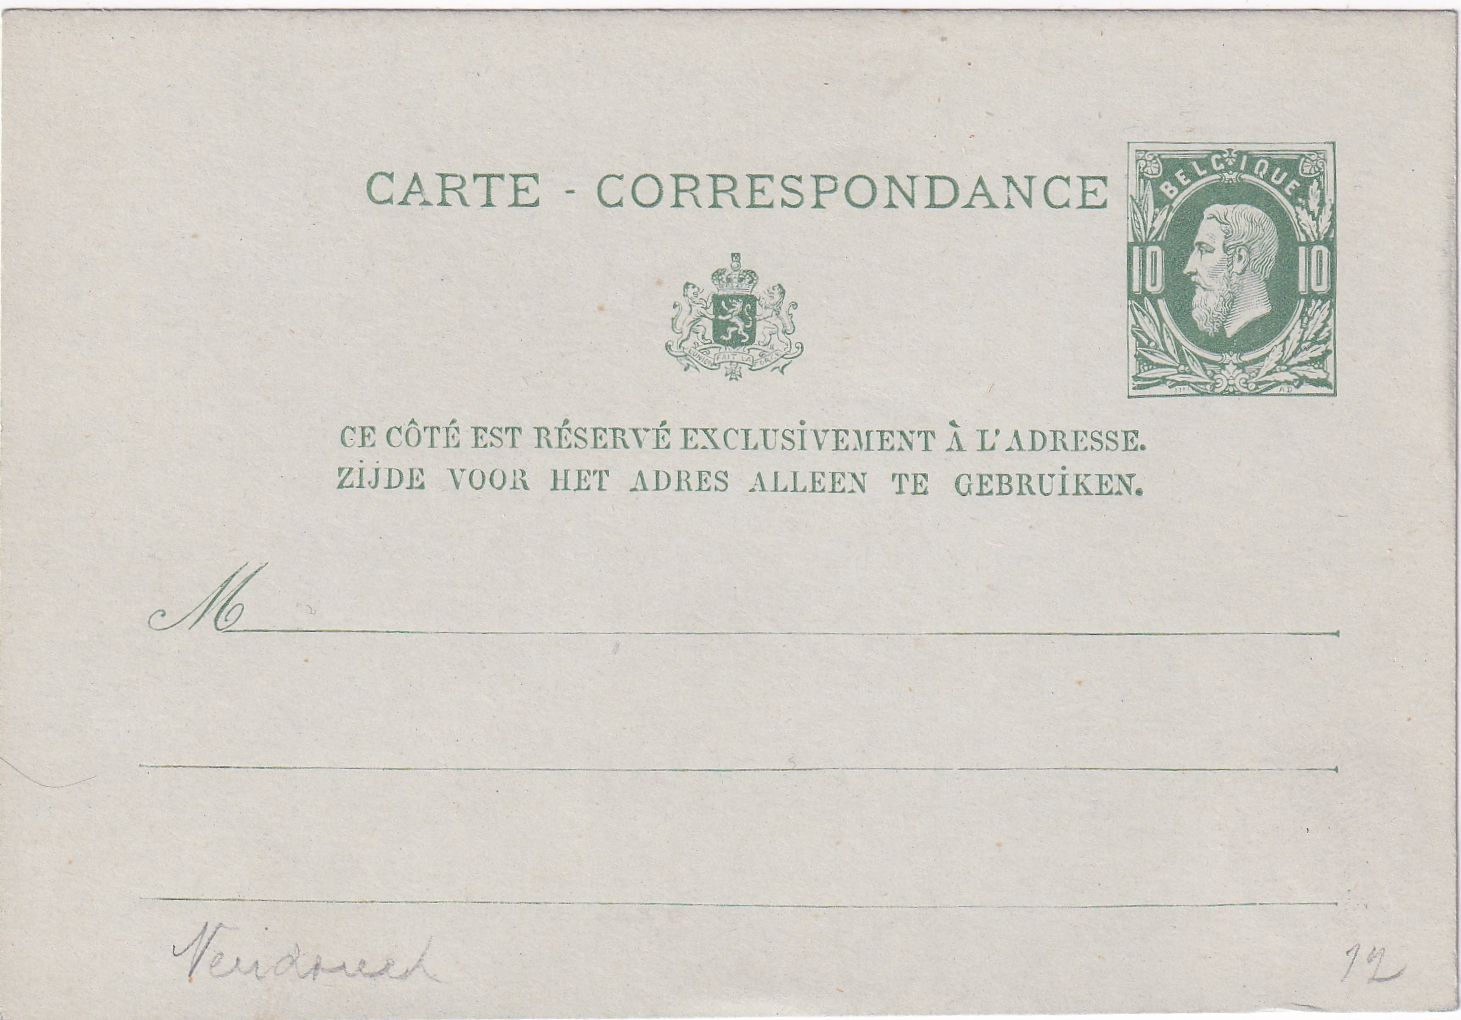 CARTE - CORRESPONDANCE
BELGIQUE
10 10
L'UNION FAIT LA FORCE
CE CÔTÉ EST RÉSERVÉ EXCLUSIVEMENT À L'ADRESSE.
ZIJDE VOOR HET ADRES ALLEEN TE GEBRUIKEN.
M
Neudruck
12